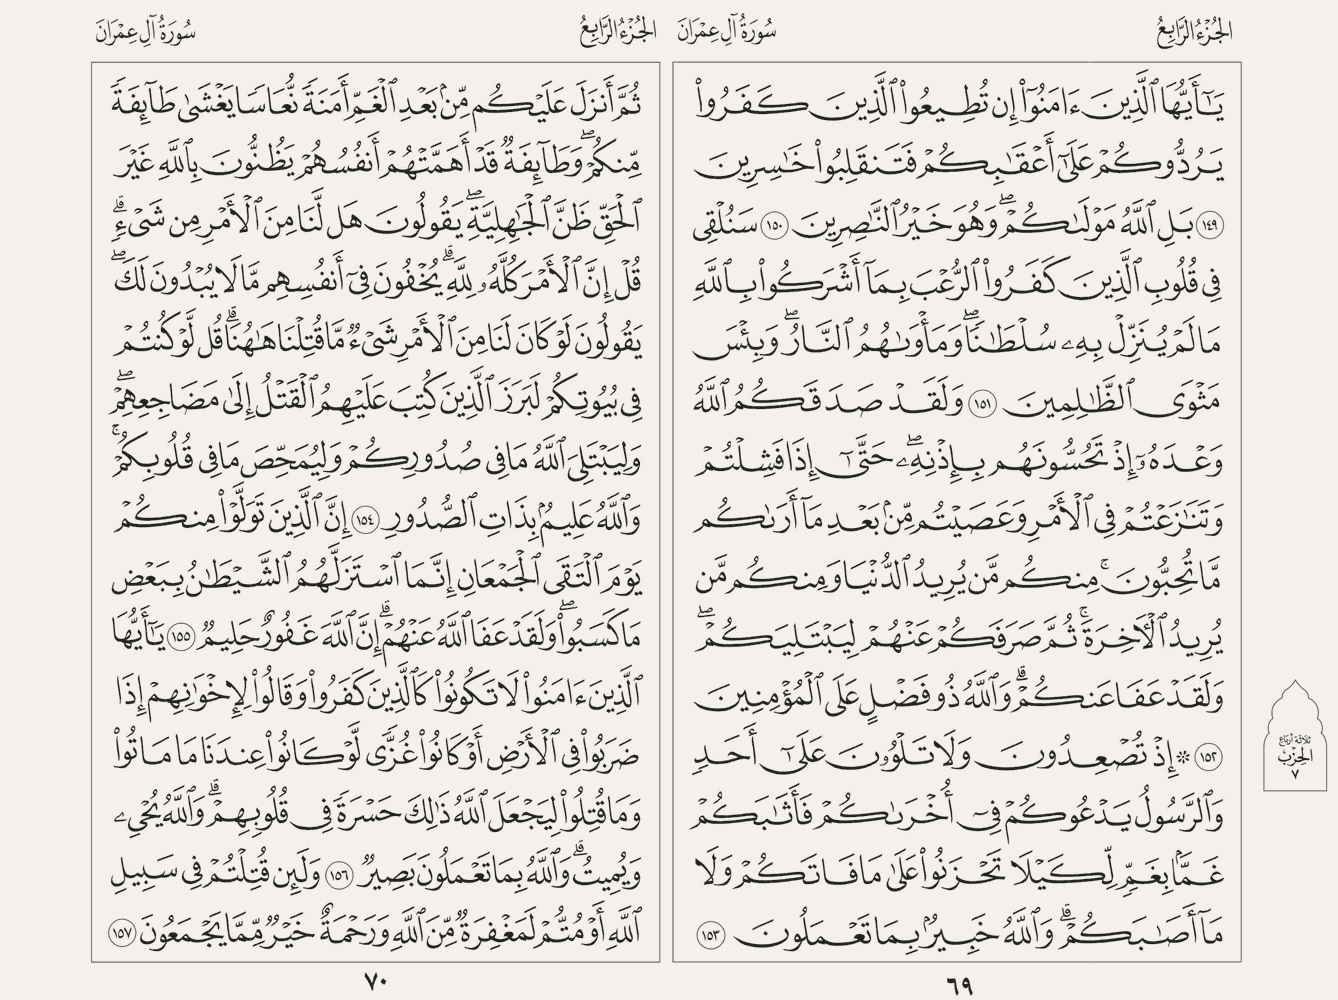 الجُزْءُ الرَّابِعُ
سُورَةُ آلِ عِمْرَانَ
يَـٰٓأَيُّهَا ٱلَّذِينَ ءَامَنُوٓا۟ إِن تُطِيعُوا۟ ٱلَّذِينَ كَفَرُوا۟
يَرُدُّوكُمْ عَلَىٰٓ أَعْقَـٰبِكُمْ فَتَنقَلِبُوا۟ خَـٰسِرِينَ
١٤٩ بَلِ ٱللَّهُ مَوْلَىٰكُمْ ۖ وَهُوَ خَيْرُ ٱلنَّـٰصِرِينَ ١٥٠ سَنُلْقِى
فِى قُلُوبِ ٱلَّذِينَ كَفَرُوا۟ ٱلرُّعْبَ بِمَآ أَشْرَكُوا۟ بِٱللَّهِ
مَا لَمْ يُنَزِّلْ بِهِۦ سُلْطَـٰنًا ۖ وَمَأْوَىٰهُمُ ٱلنَّارُ ۖ وَبِئْسَ
مَثْوَى ٱلظَّـٰلِمِينَ ١٥١ وَلَقَدْ صَدَقَكُمُ ٱللَّهُ
وَعْدَهُۥٓ إِذْ تَحُسُّونَهُم بِإِذْنِهِۦ ۖ حَتَّىٰٓ إِذَا فَشِلْتُمْ
وَتَنَـٰزَعْتُمْ فِى ٱلْأَمْرِ وَعَصَيْتُم مِّنۢ بَعْدِ مَآ أَرَىٰكُم
مَّا تُحِبُّونَ ۚ مِنكُم مَّن يُرِيدُ ٱلدُّنْيَا وَمِنكُم مَّن
يُرِيدُ ٱلْـَٔاخِرَةَ ۚ ثُمَّ صَرَفَكُمْ عَنْهُمْ لِيَبْتَلِيَكُمْ ۖ
وَلَقَدْ عَفَا عَنكُمْ ۗ وَٱللَّهُ ذُو فَضْلٍ عَلَى ٱلْمُؤْمِنِينَ
١٥٢ ۞ إِذْ تُصْعِدُونَ وَلَا تَلْوُۥنَ عَلَىٰٓ أَحَدٍ
وَٱلرَّسُولُ يَدْعُوكُمْ فِىٓ أُخْرَىٰكُمْ فَأَثَـٰبَكُمْ
غَمًّۢا بِغَمٍّ لِّكَيْلَا تَحْزَنُوا۟ عَلَىٰ مَا فَاتَكُمْ وَلَا
مَآ أَصَـٰبَكُمْ ۗ وَٱللَّهُ خَبِيرٌۢ بِمَا تَعْمَلُونَ ١٥٣
٦٩
ثلاثة أرباع
الحزب
٧
الجُزْءُ الرَّابِعُ
سُورَةُ آلِ عِمْرَانَ
ثُمَّ أَنزَلَ عَلَيْكُم مِّنۢ بَعْدِ ٱلْغَمِّ أَمَنَةً نُّعَاسًا يَغْشَىٰ طَآئِفَةً
مِّنكُمْ ۖ وَطَآئِفَةٌ قَدْ أَهَمَّتْهُمْ أَنفُسُهُمْ يَظُنُّونَ بِٱللَّهِ غَيْرَ
ٱلْحَقِّ ظَنَّ ٱلْجَـٰهِلِيَّةِ ۖ يَقُولُونَ هَل لَّنَا مِنَ ٱلْأَمْرِ مِن شَىْءٍ ۗ
قُلْ إِنَّ ٱلْأَمْرَ كُلَّهُۥ لِلَّهِ ۗ يُخْفُونَ فِىٓ أَنفُسِهِم مَّا لَا يُبْدُونَ لَكَ ۖ
يَقُولُونَ لَوْ كَانَ لَنَا مِنَ ٱلْأَمْرِ شَىْءٌ مَّا قُتِلْنَا هَـٰهُنَا ۗ قُل لَّوْ كُنتُمْ
فِى بُيُوتِكُمْ لَبَرَزَ ٱلَّذِينَ كُتِبَ عَلَيْهِمُ ٱلْقَتْلُ إِلَىٰ مَضَاجِعِهِمْ ۖ
وَلِيَبْتَلِىَ ٱللَّهُ مَا فِى صُدُورِكُمْ وَلِيُمَحِّصَ مَا فِى قُلُوبِكُمْ ۚ
وَٱللَّهُ عَلِيمٌۢ بِذَاتِ ٱلصُّدُورِ ١٥٤ إِنَّ ٱلَّذِينَ تَوَلَّوْا۟ مِنكُمْ
يَوْمَ ٱلْتَقَى ٱلْجَمْعَانِ إِنَّمَا ٱسْتَزَلَّهُمُ ٱلشَّيْطَـٰنُ بِبَعْضِ
مَا كَسَبُوا۟ ۖ وَلَقَدْ عَفَا ٱللَّهُ عَنْهُمْ ۗ إِنَّ ٱللَّهَ غَفُورٌ حَلِيمٌ ١٥٥ يَـٰٓأَيُّهَا
ٱلَّذِينَ ءَامَنُوا۟ لَا تَكُونُوا۟ كَٱلَّذِينَ كَفَرُوا۟ وَقَالُوا۟ لِإِخْوَٰنِهِمْ إِذَا
ضَرَبُوا۟ فِى ٱلْأَرْضِ أَوْ كَانُوا۟ غُزًّى لَّوْ كَانُوا۟ عِندَنَا مَا مَاتُوا۟
وَمَا قُتِلُوا۟ لِيَجْعَلَ ٱللَّهُ ذَٰلِكَ حَسْرَةً فِى قُلُوبِهِمْ ۗ وَٱللَّهُ يُحْىِۦ
وَيُمِيتُ ۗ وَٱللَّهُ بِمَا تَعْمَلُونَ بَصِيرٌ ١٥٦ وَلَئِن قُتِلْتُمْ فِى سَبِيلِ
ٱللَّهِ أَوْ مُتُّمْ لَمَغْفِرَةٌ مِّنَ ٱللَّهِ وَرَحْمَةٌ خَيْرٌ مِّمَّا يَجْمَعُونَ ١٥٧
٧٠